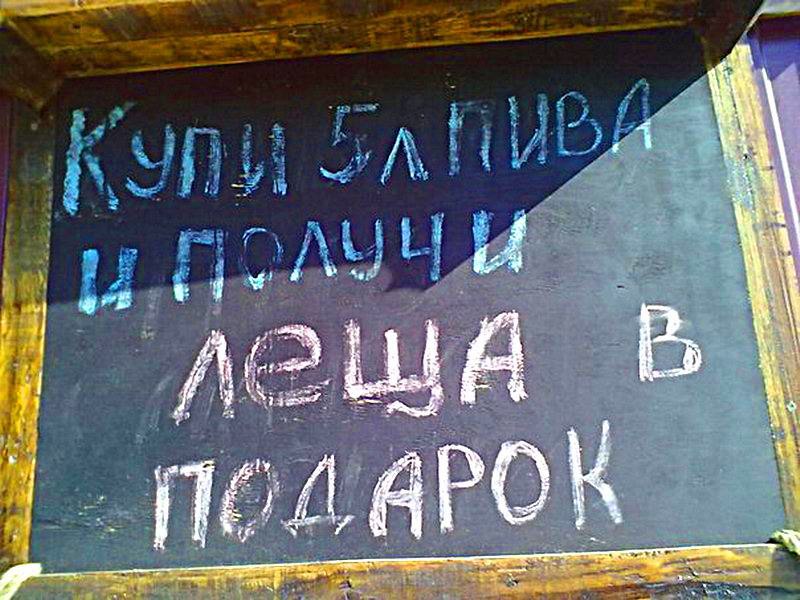 Купи 5л ПИВА
и получи
леща в
подарок